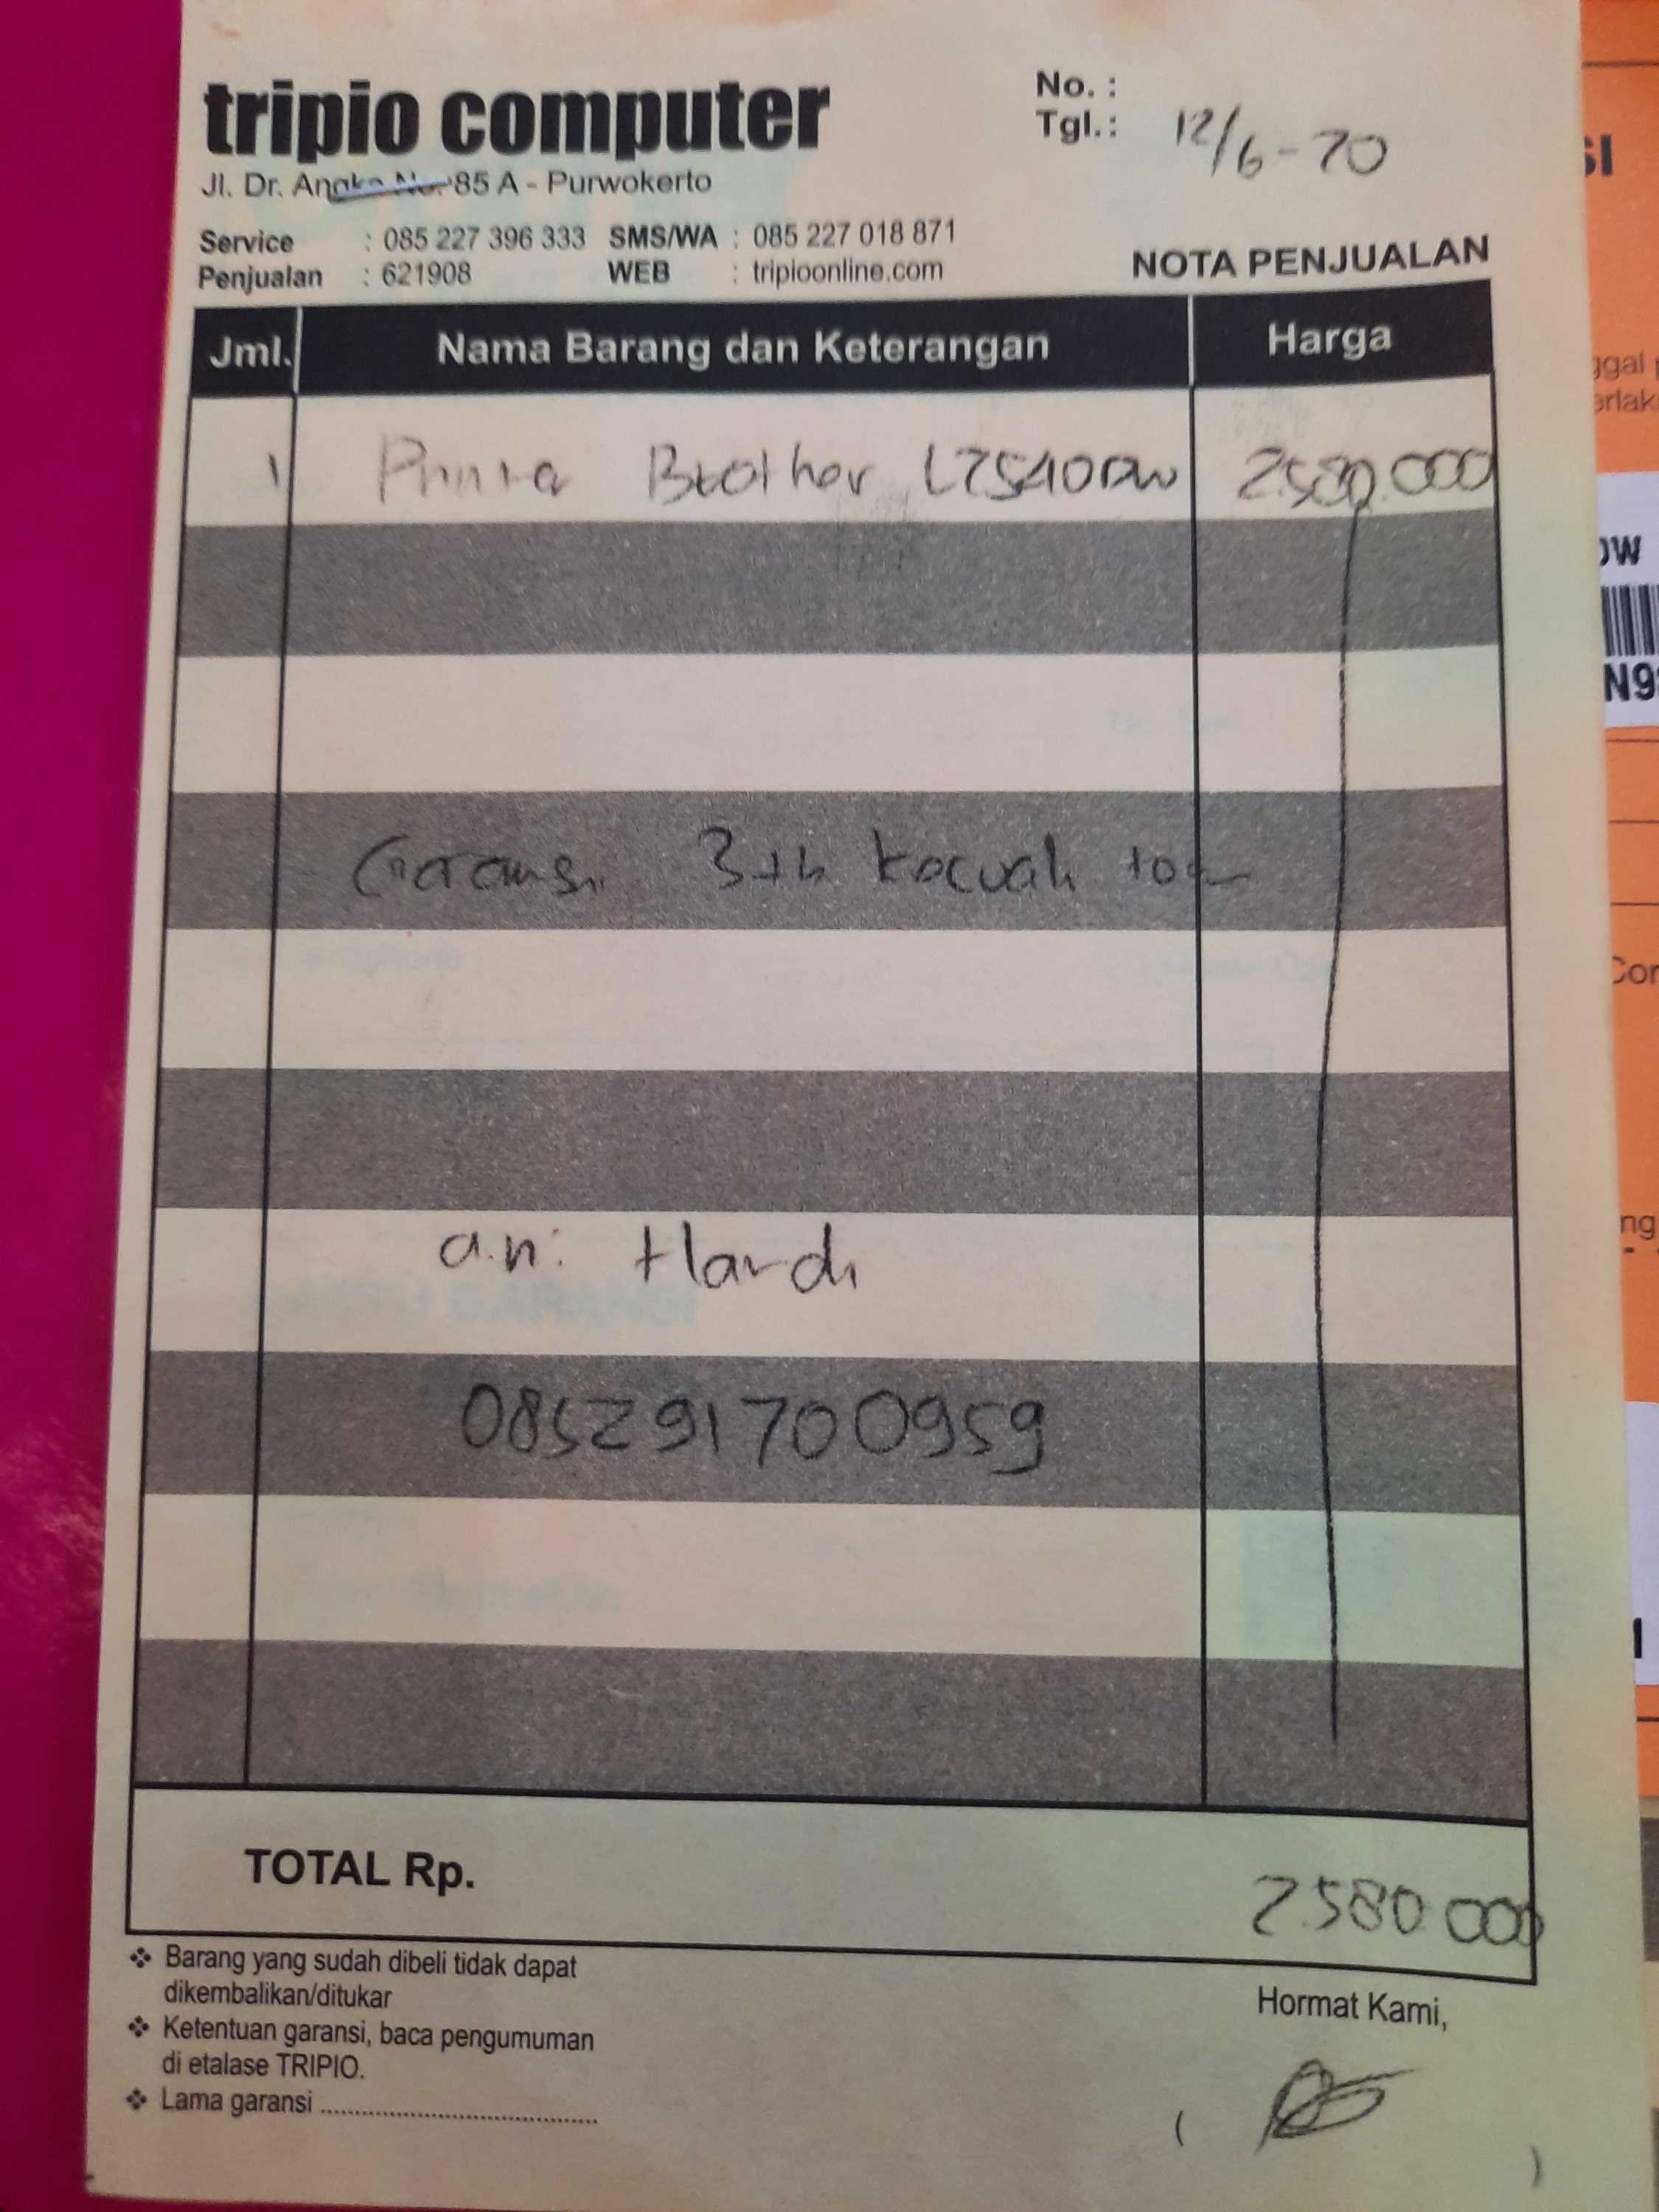 tripio computer
Jl. Dr. Angka No. 85 A - Purwokerto
Service : 085 227 396 333 SMS/WA : 085 227 018 871
Penjualan : 621908 WEB : tripioonline.com
No. :
Tgl.: 12/6-20
NOTA PENJUALAN
Jml. Nama Barang dan Keterangan Harga
1 Printer Brother L2540DW 2.580.000
Garansi 3th kecuali
a.n: Hardi
085291700959
TOTAL Rp. 2.580.000
Barang yang sudah dibeli tidak dapat
dikembalikan/ditukar
Ketentuan garansi, baca pengumuman
di etalase TRIPIO.
Lama garansi ..........................................
Hormat Kami,
( )
SI
ggal
erlak
OW
N9
Con
ng